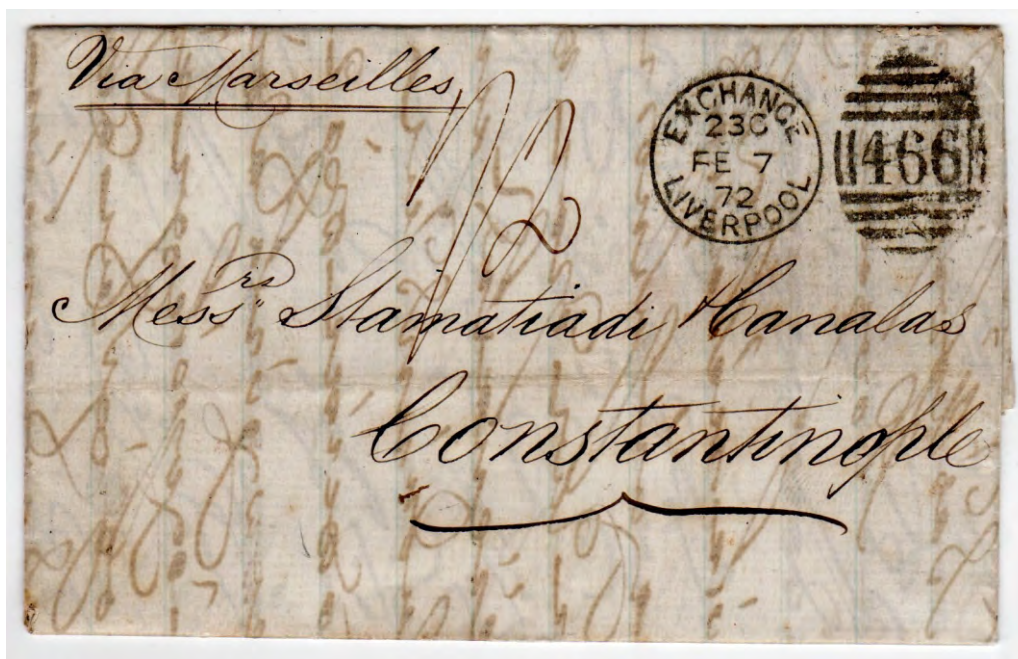 Via Marseilles
EXCHANGE
23C
FE 7
72
LIVERPOOL
466
Messrs Stamatiadi
Constantinople